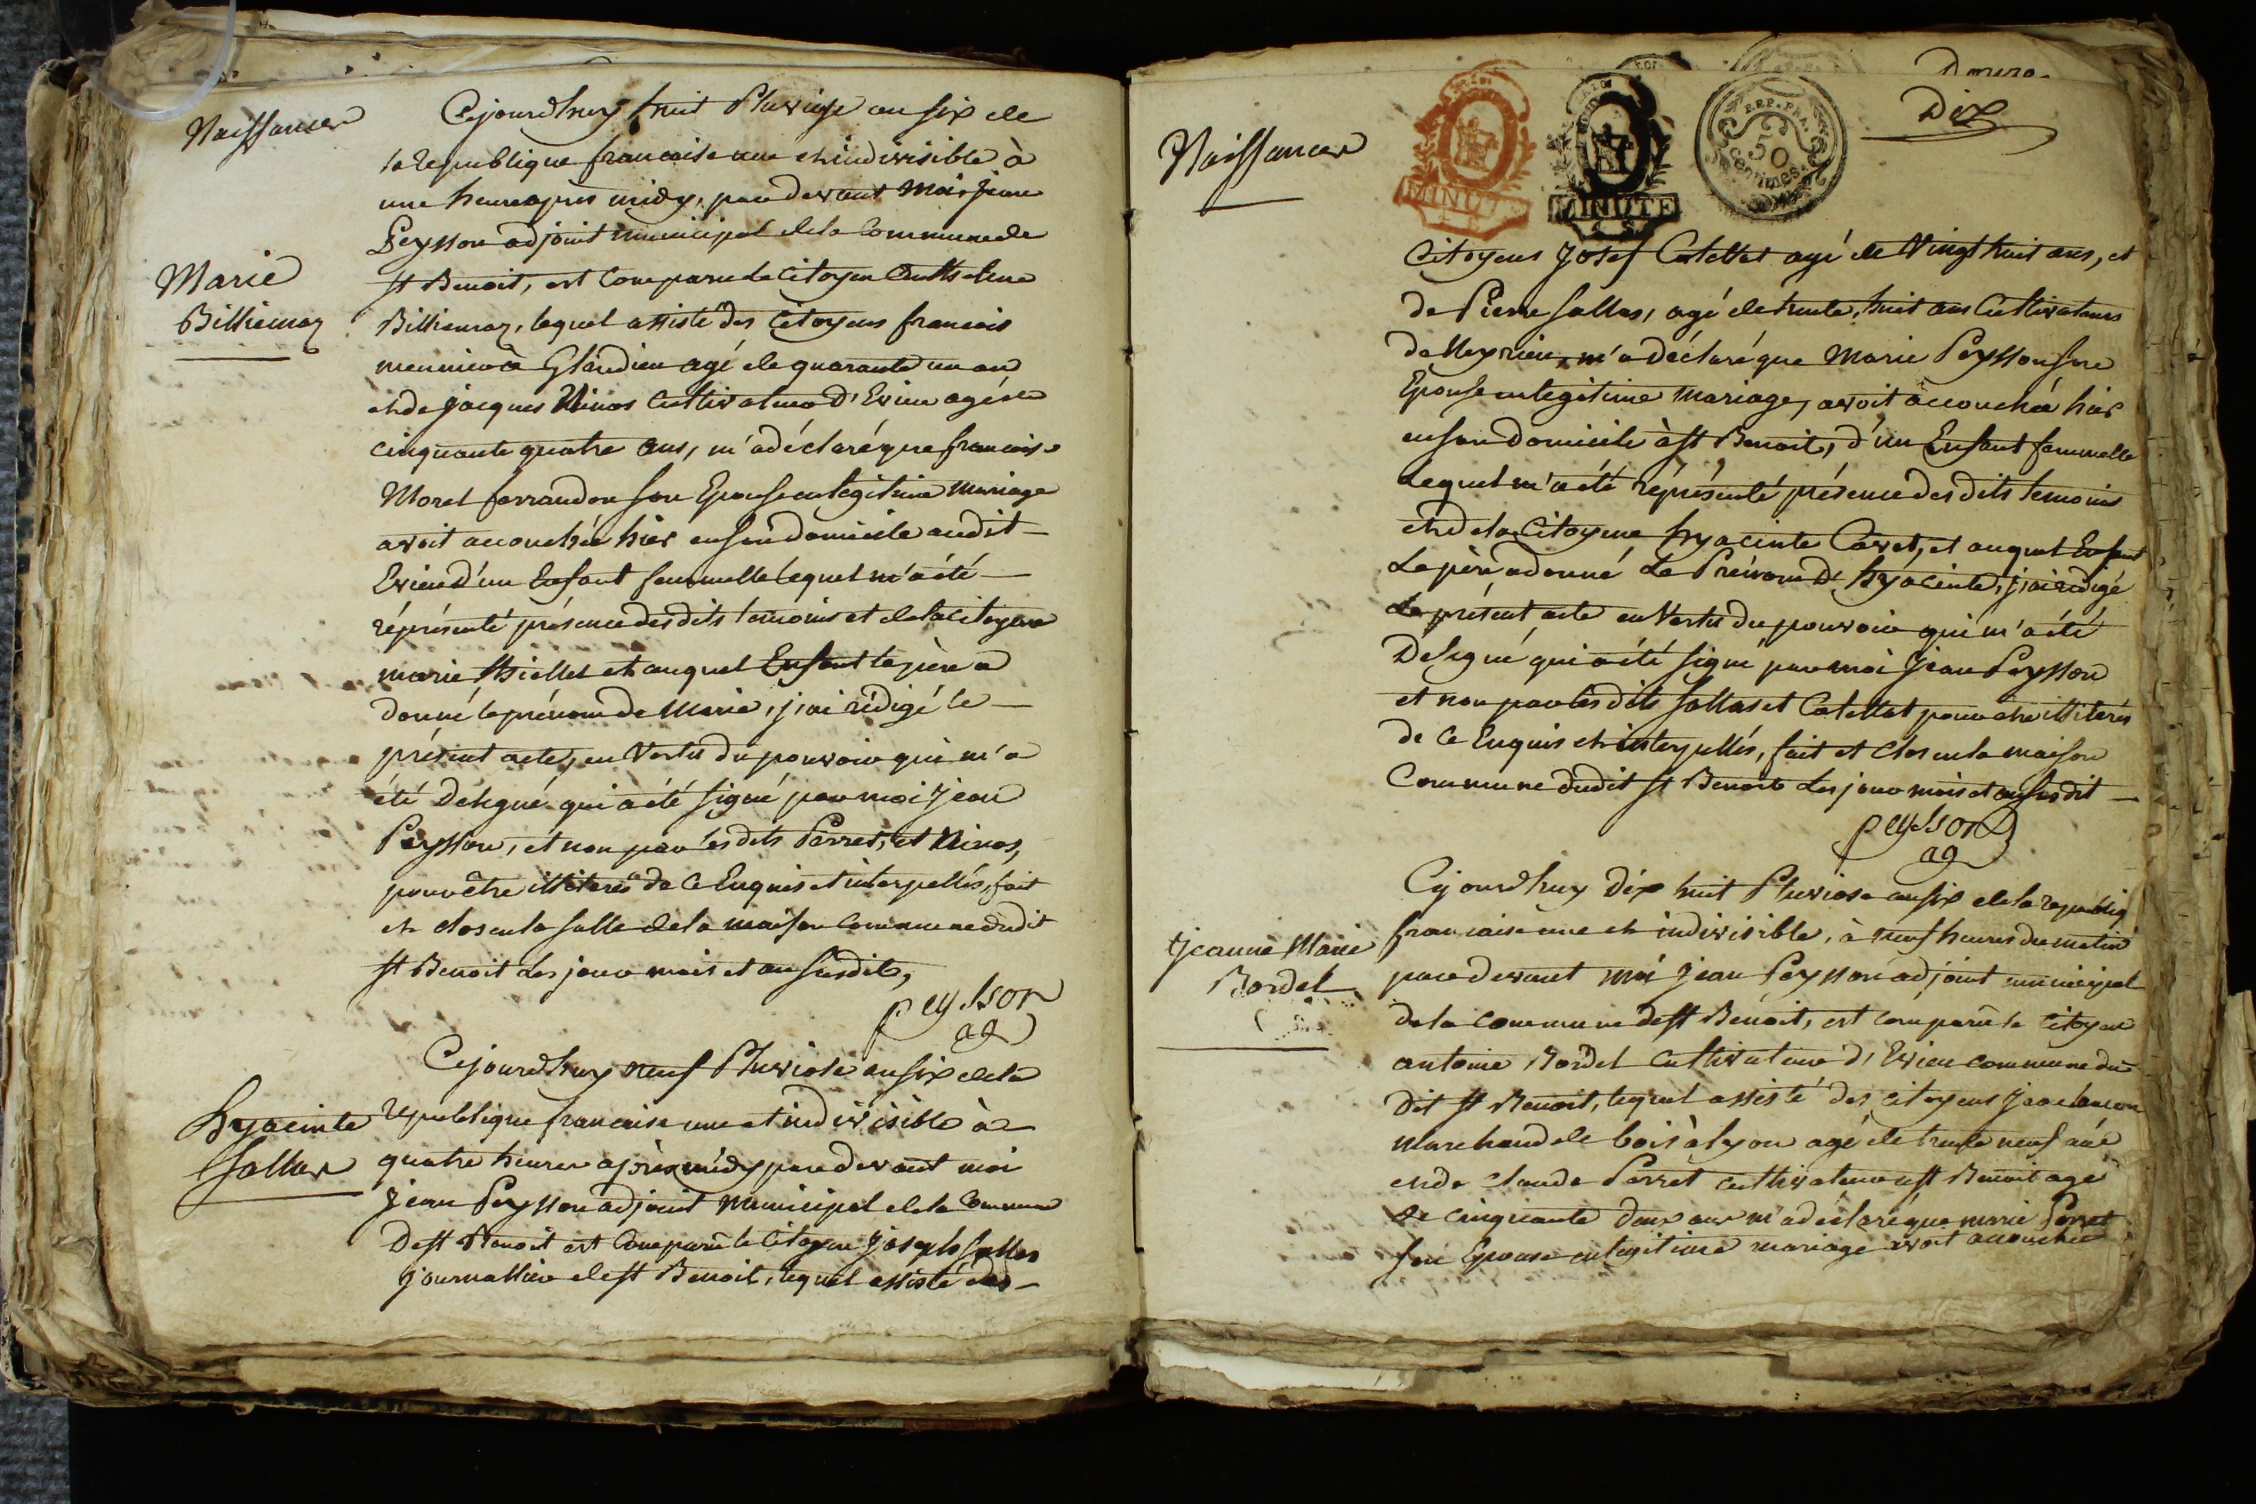 Naissances
Cejourdhuy huit Pluviose an six de
la republique francaise une et indivisible à
une heure après midy, par devant Moi Jean
Peysson adjoint municipal de la Commune de
Marie
Billiemaz
st Benoit, est Comparu le Citoyen Anthelme
Billiemaz, lequel assisté des Citoyens francois
meunier à Glandieu agé de quarante un an
et de jacques Ninos Cultivateur d'Evieu agé de
cinquante quatre ans, m'a déclaré que francoise
Morel ferrandon son Epouse en legitime Mariage
avoit accouchée hier en son domicile audit
Evieu d'un Enfant femmelle lequel m'a été
répresenté présence des dits temoins et de la citoyene
marie et auquel Enfant le père a
donné le prénom de Marie, j'ai rédigé le
présent acte, en Vertu du pouvoir qui m'a
été Delegué qui a été signé par moi Jean
Peysson, et non par les dits Perret, et Ninos,
pour être illiterés de Ce Enquis et interpellés, fait
et clos en la salle de la maison Commune dudit
st Benoit les jour mois et an susdits,
peysson
ag
Cejourdhuy neuf Pluviose an six de la
Hyacinte
Sallas
republique francaise une et indivisible à
quatre heures après midy par devant moi
Jean Peysson adjoint municipal de la Commune
De st Benoit est Comparu le Citoyen Joseph Sallas
journallier de st Benoit, lequel assisté des
Naissances
MINUTE
MINUTE
REP. FRA.
50
centimes
Dix
Citoyens Josef Catellat agé de Vingt huit ans, et
de Pierre Sallas, agé de trente huit ans Cultivateurs
de Meyrieu, m'a déclaré que Marie Peysson son
Epouse en legitime Mariage, avoit accouchée hier
en son domicile à st Benoit, d'un Enfant femmelle
Lequel m'a été répresenté présence des dits temoins
et de la Citoyene hyacinte Cavet, et auquel Enfant
Le père a donné Le Prénom D'hyacinte, j'ai rédigé
Le présent acte en Vertu du pouvoir qui m'a été
Delegué qui a été signé par moi Jean Peysson
et non par les dits Sallas et Catellat pour etre illiterés
de Ce Enquis et interpellés, fait et clos en la maison
Commune dudit st Benoit Les jour mois et an susdit
peysson
ag
Cejourdhuy Dix huit Pluviose an six de la republiq
Jeanne Marie
Bordel
francaise une et indivisible, à neuf heures du matin
par devant moi Jean Peysson adjoint municipal
de la commune de st Benoit, est comparu le Citoyen
antoine Bordel Cultivateur d'Evieu commune du
Dit st Benoit, lequel assisté des citoyens
marchand de bois à lyon agé de trente neuf ans
et de claude Perret cultivateur à st Benoit agé
de cinquante deux ans m'a déclaré que marie Perret
son Epouse en legitime mariage avoit accouchée